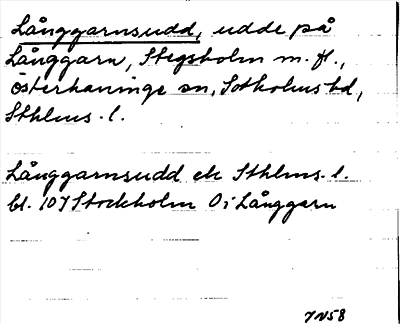 Långgarnsudd, udde på
Långgarn, Stegsholm m. fl.,
Österhaninge sn, Sotholms hd,
Sthlms. l.
Långgarnsudd ek Sthlms. l.
bl. 107 Stockholm O i Långgarn
7N58